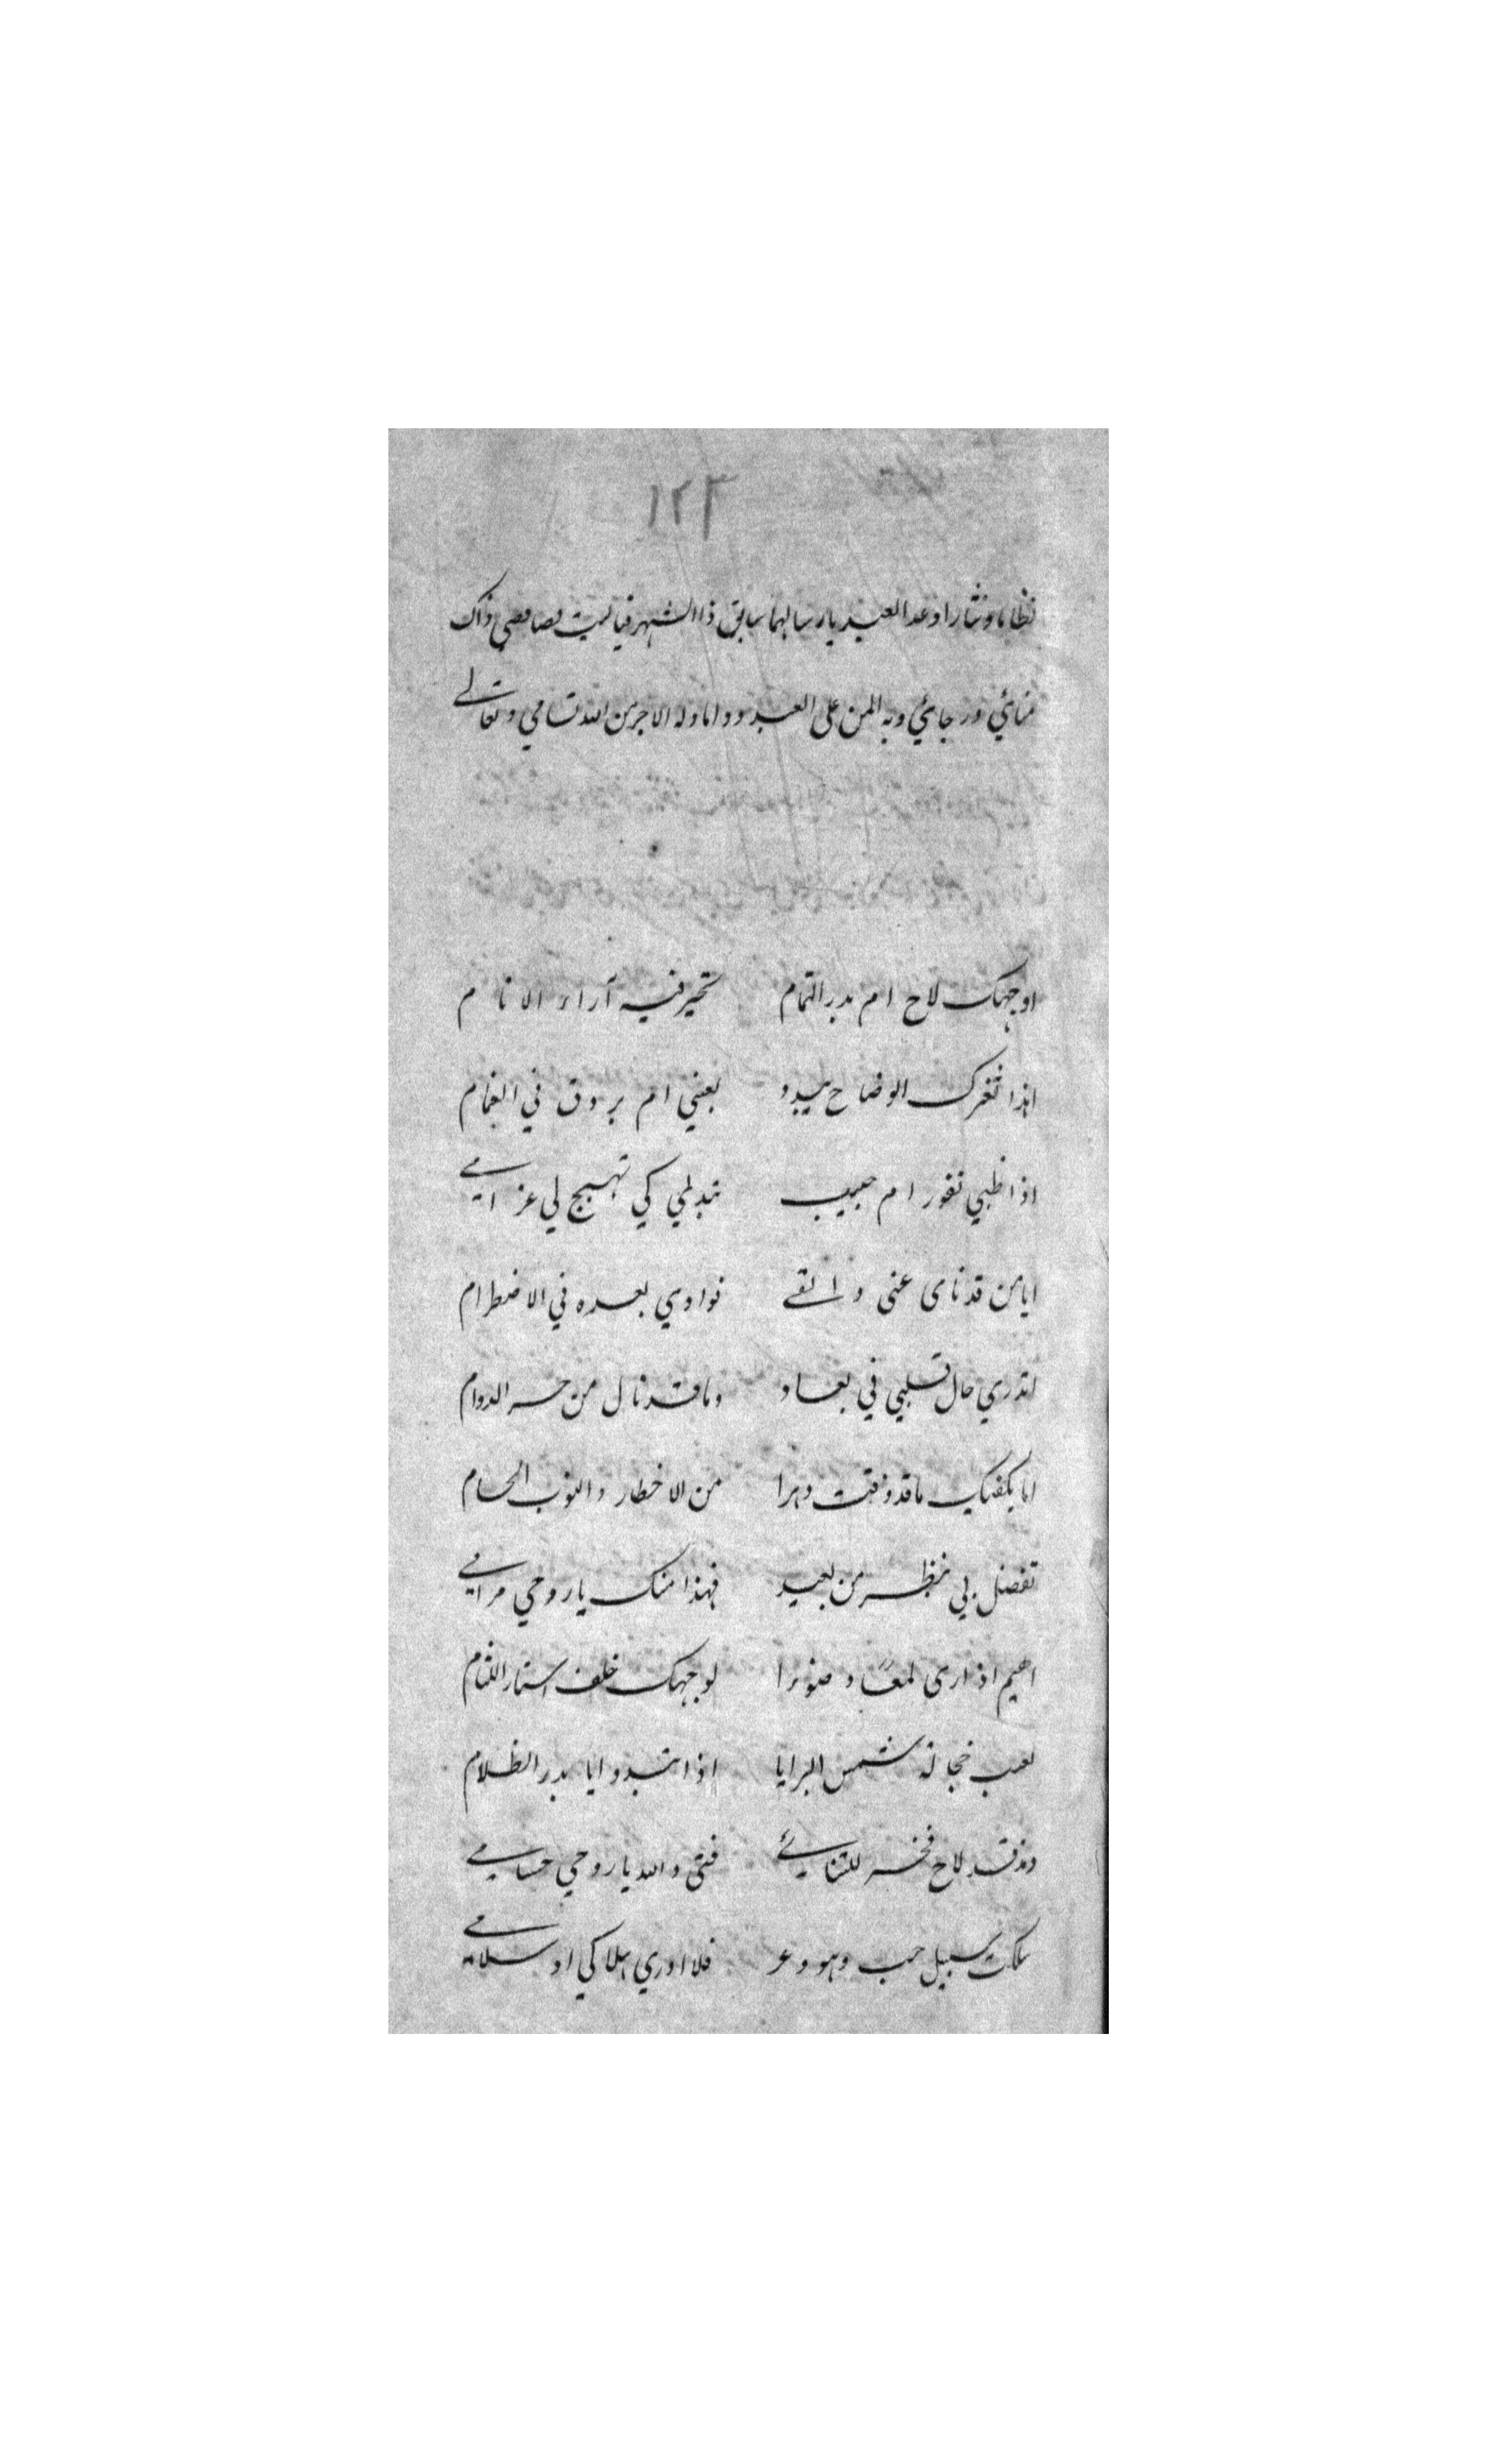 ١٢٣
نظاما ونثارا وعد العبد يارسالهما سابق ذا الشهر فيا ليت ذاك
منائي ورجائي وبه المن على العبد وداما وله الاجر من الله تسامي وتعالے
اوجهك لاح ام بدر التمام تحير فيه آراء الانام
اهذا ثغرك الوضاح يبدو بعيني ام بروق في الغمام
اذا ظبي نفور ام حبيب تبدلي كي تهيج لي غرامے
ايا من قد نامى عنى والقے فوادي بعده في الاضطرام
اتدري حال قلبي في بعاد وما قد نال من حر الدوام
اما يكفيك ما قد ذقت دهرا من الاخطار والنوب الجسام
تفضل بي بنظر من بعيد فهذا منك يا روحي مرامے
اهيم اذ ارى لمعًا وضوءا لوجهك خلف استار اللثام
لعب خجالة شمس البرايا اذا تبدو ايا بدر الظلام
ومذ قد لاح فخر للثنائے فتى والله يا روحي حسامے
سلكت سبيل حب وهو وعر فلا ادري هلاكي او سلامے